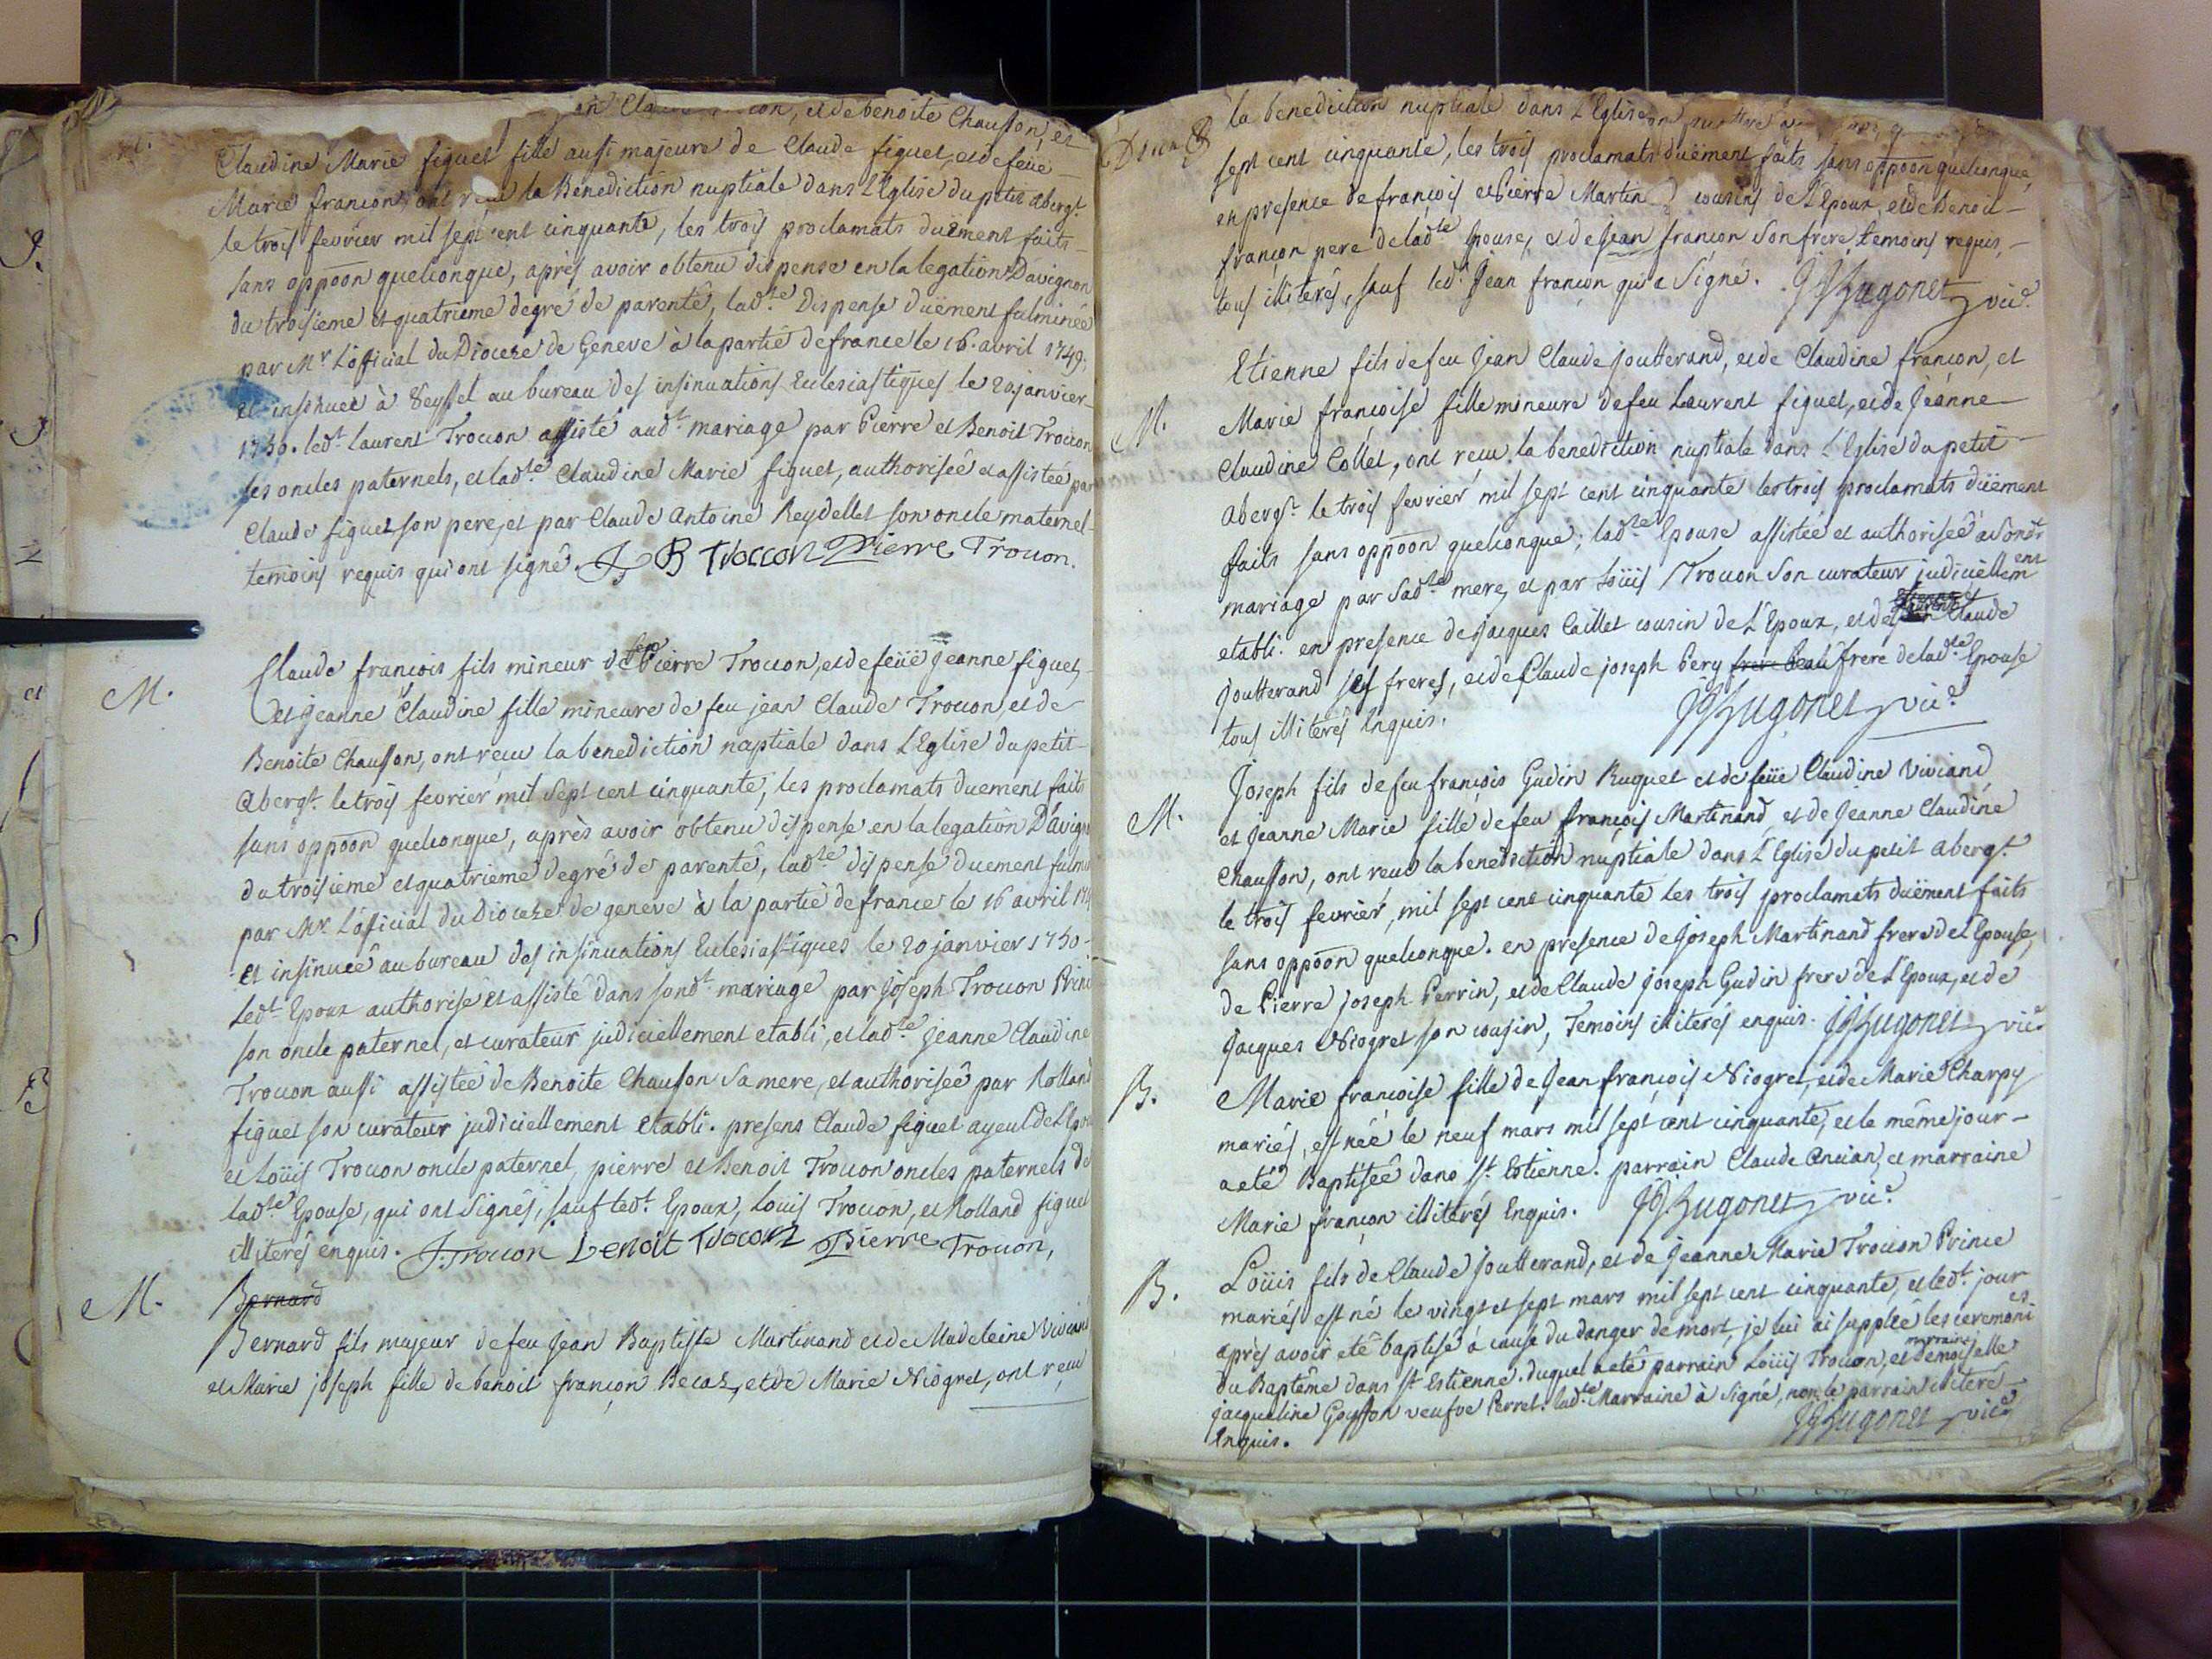 et de benoite Chausson, et
Claudine Marie figuet fille aussi majeure de Claude figuet, et de feüe
Marie françon, ont reçu la Benediction nuptiale dans L'Eglise du petit abergt.
le trois fevrier mil sept cent cinquante, les trois proclamats duëment faits
sans oppoon quelconque, après avoir obtenu dispense en la legation Davignon
du troisieme et quatrieme degré de parenté, ladte. Dispense duëment fulminée
par Mr L'official du Diocese de Geneve à la partie de france le 16. avril 1749.
et insinuée à Seyssel au bureau des insinuations Eclesiastiques le 20 janvier
1750. ledt. laurent Troccon assisté audt. mariage par Pierre et Benoit Troccon
ses oncles paternels, et ladte. Claudine Marie figuet, authorisée et assistée par
Claude figuet son pere, et par Claude Antoine Reydellet son oncle maternel
temoins requis qui ont signé. J B Troccon Pierre Troccon.
M.
Claude francois fils mineur de Pierre Troccon, et de feüe Jeanne figuet,
et Jeanne Claudine fille mineure de feu jean Claude Troccon, et de
Benoite Chausson, ont reçu la benediction nuptiale dans L'Eglise du petit
abergt. le trois fevrier mil sept cent cinquante, les proclamats duement faits
sans oppoon quelconque, après avoir obtenu dispense en la legation D'avign
du troisieme et quatrieme degré de parenté, ladte dispense duement fulm
par Mr. L'official du Diocese de geneve à la partie de france le 16 avril 174
et insinuée au bureau des insinuations Eclesiastiques le 20 janvier 1750-
Ledt. Epoux authorisé et assisté dans sondt. mariage par Joseph Troccon Princ
son oncle paternel, et curateur judiciellement etabli, et ladte. Jeanne Claudine
Troccon aussi assistée de Benoite Chausson sa mere, et authorisée par Rolland
figuet son curateur judiciellement etabli. presens Claude figuet ayeul de L'Epou
et Loüis Troccon oncle paternel, pierre et Benoit Troccon oncles paternels de
ladte Epouse, qui ont Signés, sauf ledt. Epoux, Louis Troccon, et Rolland figuet
illiterés enquis. J. Troccon benoit Troccon Pierre Troccon,
M.
Bernard
Bernard fils majeur de feu Jean Baptiste Martinand et de Madeleine Viviand
et Marie joseph fille de benoit françon Becaz, et de Marie Niogret, ont reçu
la benediction nuptiale dans L'Eglise
sept cent cinquante, les trois proclamats duëment faits sans oppoon quelconque,
en presence de françois et Pierre Martin cousins de L'Epoux, et de Benoit
françon pere de ladte Epouse, et de Jean françon son frere temoins requis,
tous illiterés, sauf led. Jean françon qui a Signé. JJ Hugonet vic.
M.
Etienne fils de feu Jean Claude joutterand, et de Claudine françon, et
Marie françoise fille mineure de feu Laurent figuet, et de Jeanne
Claudine Collet, ont reçu la benediction nuptiale dans L'Eglise du petit
abergt. le trois fevrier mil sept cent cinquante les trois proclamats duëment
faits sans oppoon quelconque; ladte Epouse assistée et authorisée à sondt
mariage par sadte. mere, et par Loüis Troccon son curateur judiciellement
etabli. en presence de jacques Caillet cousin de L'Epoux, et de Claude
joutterand ses freres, et de Claude joseph Pery frere beau frere de ladte Epouse
tous illiterés Enquis. JJ Hugonet vic.
M.
Joseph fils de feu françois Gudin Ruguet et de feüe Claudine Viviand,
et Jeanne Marie fille de feu françois Martinand, et de Jeanne Claudine
Chausson, ont recu la benediction nuptiale dans L'Eglise du petit abergt.
le trois fevrier, mil sept cent cinquante Les trois proclamats duëment faits
sans oppoon quelconque. en presence de Joseph Martinand frere de L'Epouse,
de Pierre joseph Perrin, et de Claude joseph Gudin frere de L'Epoux, et de
Jacques Niogret son cousin, Temoins illiterés enquis. JJ Hugonet vic.
B.
Marie françoise fille de Jean françois Niogret, et de Marie Charpy
mariés, est née le neuf mars mil sept cent cinquante, et le même jour
a eté Baptisée dans St. Estienne. parrain Claude Ancian, et marraine
Marie françon illiterés Enquis. JJ Hugonet vic.
B.
Loüis fils de Claude joutterand, et de Jeanne Marie Troccon Prince
mariés est né le vingt et sept mars mil sept cent cinquante, et ledt. jour
après avoir eté baptisé à cause du danger de mort, je lui ai supplée les ceremonies
du Baptême dans St Estienne. duquel a eté parrain Loüis Troccon, et marraine demoiselle
jacqueline Goyffon veufve Perret. ladte. Marraine à Signé, non le parrain illiteré
Enquis. JJ Hugonet vic.